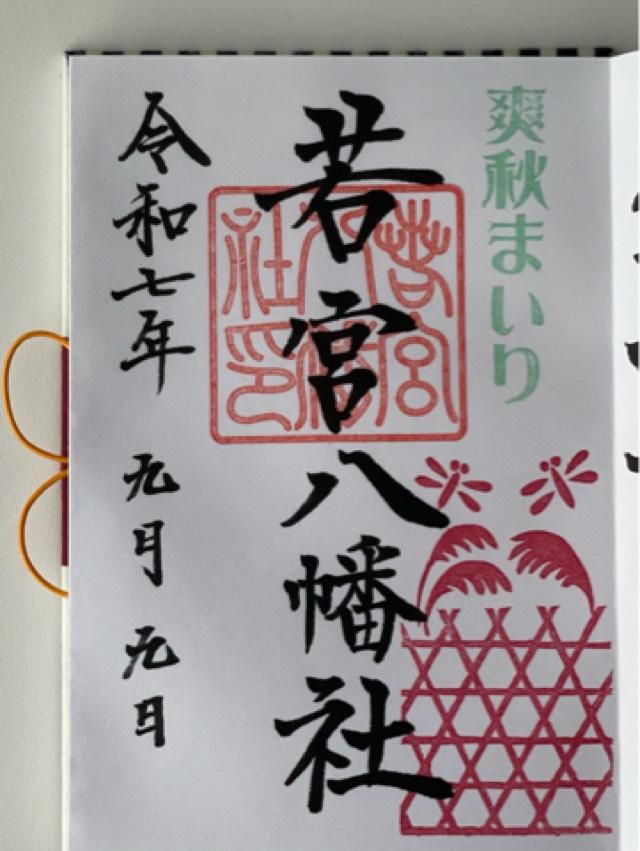 爽秋まいり
若宮八幡社
若宮
八幡
社印
令和七年 九月 九日